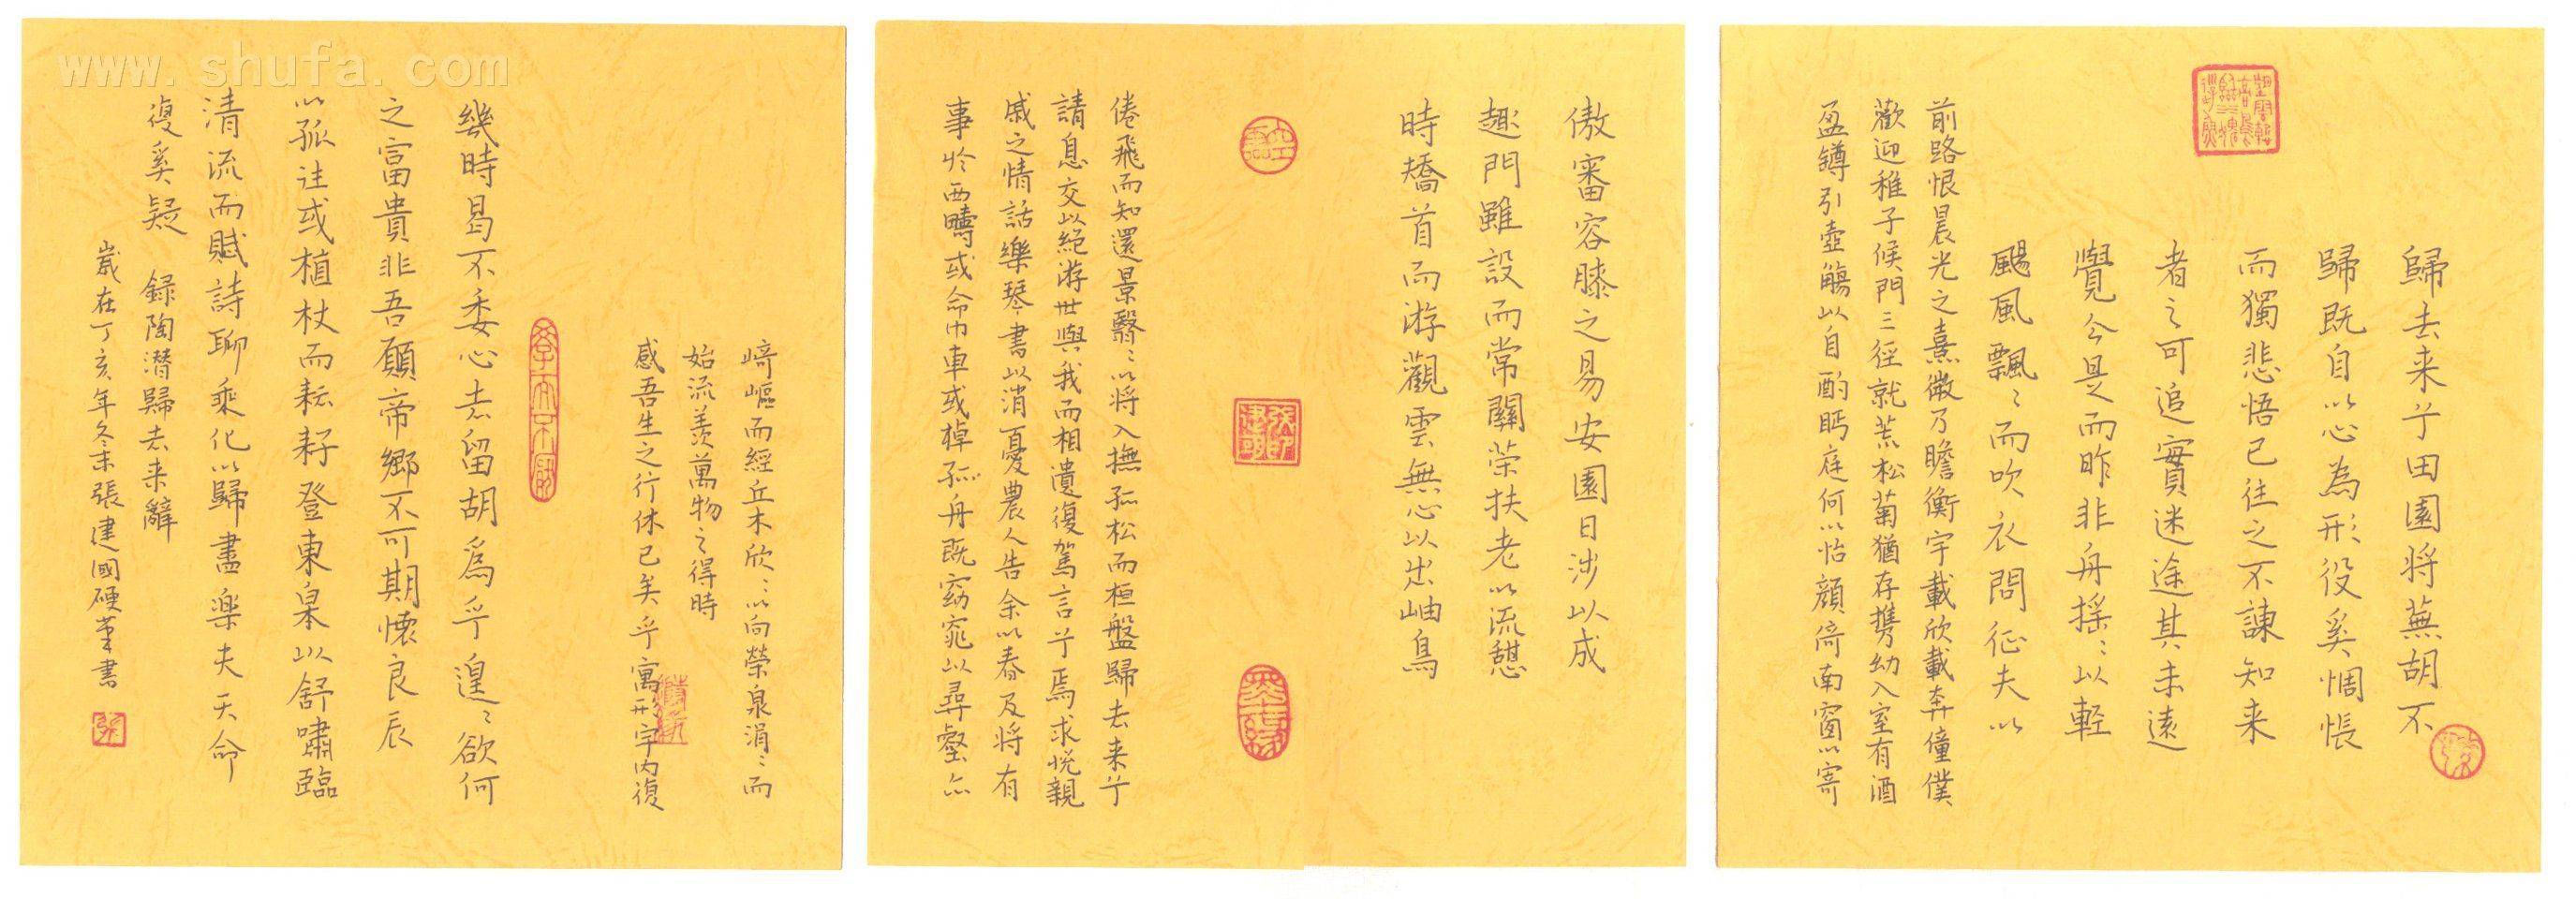 歸去来兮田園将蕪胡不
歸既自以心為形役奚惆悵
而獨悲悟已往之不諫知来
者之可追實迷途其未遠
覺今是而昨非舟摇〻以輕
颺風飄〻而吹衣問征夫以
前路恨晨光之熹微乃瞻衡宇載欣載奔僮僕
歡迎稚子候門三徑就荒松菊猶存攜幼入室有酒
盈罇引壺觴以自酌眄庭柯以怡顏倚南窗以寄
傲審容膝之易安園日涉以成
趣門雖設而常關策扶老以流憩
時矯首而游觀雲無心以出岫鳥
倦飛而知還景翳〻以将入撫孤松而桓盤歸去来兮
請息交以絶游世與我而相遺復駕言兮焉求悦親
戚之情話樂琴書以消憂農人告余以春及将有
事於西疇或命巾車或棹孤舟既窈窕以尋壑亦
崎嶇而經丘木欣〻以向榮泉涓〻而
始流羨萬物之得時
感吾生之行休已矣乎寓形宇内復
幾時曷不委心去留胡為乎遑〻欲何
之富貴非吾願帝鄉不可期懷良辰
以孤往或植杖而耘耔登東皋以舒嘯臨
清流而賦詩聊乘化以歸盡樂夫天命
復奚疑 録陶潛歸去来辭
歲在丁亥年冬末張建國硬筆書
www.shufa.com